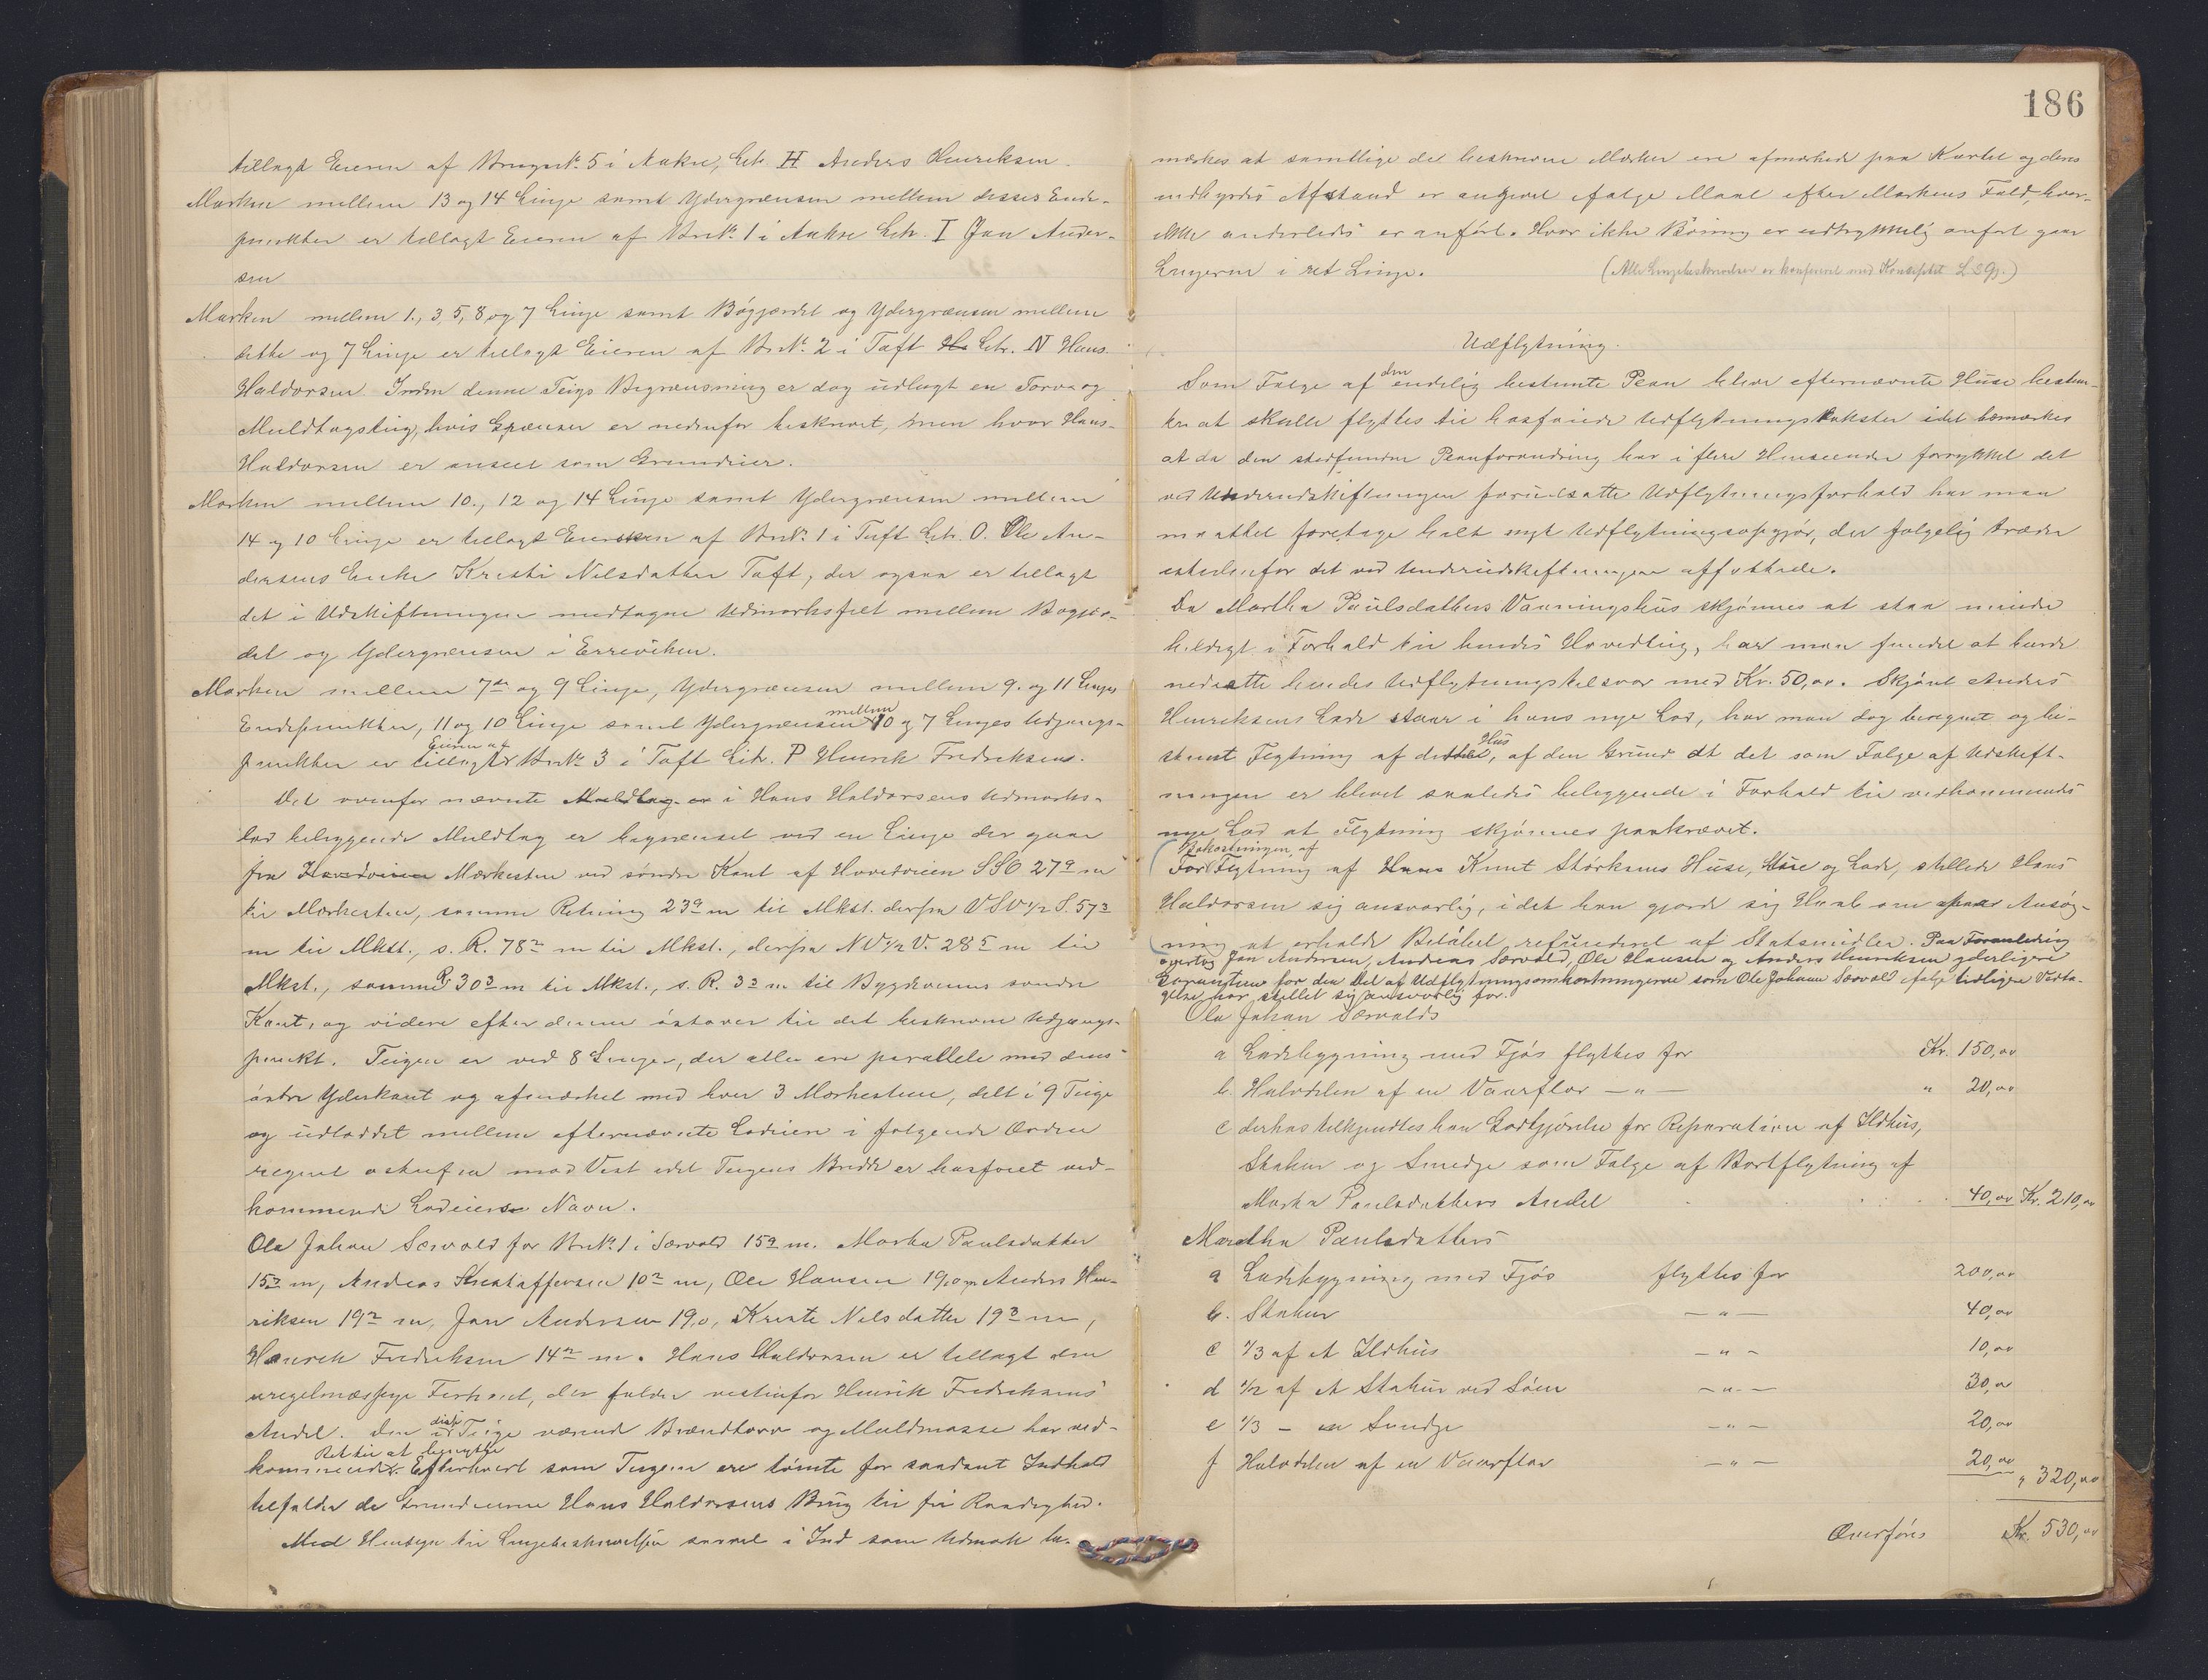 tillagt Eieren af Brugsn&ordm; 5 i Aakre, Litr. H Anders Henriksen.
Marken mellem 13 og 14 Linje samt Ydergrænsen mellem disses Ende-
punkter er tillagt Eieren af Brn&ordm; 1 i Aakre Litr. I Jan Ander-
sen
Marken mellem 1., 3, 5, 8 og 7 Linje samt Bøgjærdet og Ydergrænsen mellem
dette og 7 Linje er tillagt Eieren af Brn&ordm; 2 i Taft Litr. N Hans
Haldorsen. Inden denne Teigs Begrænsning er dog udlagt en Torv og
Muldtagsteig, hvis Grænser er nedenfor beskrevet, men hvor Hans
Haldorsen er anseet som Grundeier.
Marken mellem 10., 12 og 14 Linje samt Ydergrænsen mellem
14 og 10 Linje er tillagt Eiersken af Brn&ordm; 1 i Taft Litr. O. Ole An-
dersens Enke Kristi Nilsdatter Taft, der ogsaa er tillagt
det i Udskiftningen medtagne Udmarksfelt mellem Bøgjær-
det og Ydergrænsen i Erreviken.
Marken mellem 7de og 9 Linje, Ydergrænsen mellem 9. og 11 Linjes
Endepunkter, 11 og 10 Linje samt Ydergrænsen mellem 10 og 7 Linjes Udgangs-
punkter er tillagt Eieren af Brn&ordm; 3 i Taft Litr. P Henrik Fredriksen.
Det ovenfor nævnte Muldtag er i Hans Haldorsens Udmarks-
lod beliggende Muldtag er begrænset ved en Linje der gaar
fra Mærkesten ved søndre Kant af Hovedveien SSO 27 9 m
til Mærkesten, samme Retning 23 9 m til Mkst. derfra VSV 1/2 S. 57 3
m til Mkst., s. R. 78 2 m til Mkst., derfra NV 1/2 V. 28 5 m til
Mkst., samme R. 30 3 m til Mkst., s. R. 3 2 m til Bygdeveiens søndre
Kant, og videre efter denne østover til det beskrevne Udgangs-
punkt. Teigen er ved 8 Linjer, der alle ere parallele med dens
østre Yderkant og afmærket med hver 3 Mærkestene, delt i 9 Teige
og udloddet mellem efternævnte Lodeiere i følgende Orden
regnet østenfra mod Vest idet Teigens Bredde er hosføiet ved-
kommende Lodeiers Navn.
Ole Johan Særvold for Brn&ordm; 1 i Særvold 15 9 m. Martha Paulsdatter
15 2 m, Andreas Kristoffersen 10 2 m, Ole Hansen 19,0 m Anders Hen-
riksen 19 2 m, Jan Andersen 19,0, Kriste Nilsdatter 19 3 m,
Henrik Fredriksen 14 2 m. Hans Haldorsen er tillagt den
uregelmæssige Firkant, der falder vestenfor Henrik Fredriksens
Andel. Den i disse Teige værende Brændtorv og Muldmasse har ved-
kommende Ret til at benytte. Efterhvert som Teigene ere tømte for saadant Indhold
tilfalder de Grundeieren Hans Haldorsens Brug til fri Raadighed.
Med Hensyn til Linjebeskrivelsen saavel i Ind som Udmark be-
186
mærkes at samtlige de beskrevne Mærker ere afmærkede paa Kartet og deres
indbyrdes Afstand er angivet ifølge Maal efter Markens Fald, hvor
ikke anderledes er anført. Hvor ikke Bøining er udtrykkelig anført gaar
Linjerne i ret Linje. (Alle Linjebeskrivelser er konfereret med Konseptet L.S.Gj.)
Udflytning.
Som Følge af den endelig bestemte Plan blev efternævnte Huse bestem-
te at skulle flyttes til hosføiede Udflytningstakster idet bemærkes
at da den stedfundne Planforandring har i flere Henseender forrykket det
ved Underudskiftningen forudsatte Udflytningsforhold har man
maattet foretage helt nyt Udflytningsopgjør, der følgelig træder
istedenfor det ved Underudskiftningen affattede.
Da Martha Paulsdatters Vaaningshus skjønnes at staa mindre
heldigt i Forhold til hendes Hovedteig, har man fundet at burde
nedsætte hendes Udflytningstilsvar med Kr. 50,00. Skjønt Anders
Henriksens Lade staar i hans nye Lod, har man dog beregnet og be-
stemt Flytning af dette Hus, af den Grund at det som Følge af Udskift-
ningen er blevet saaledes beliggende i Forhold til vedkommendes
nye Lod at Flytning skjønnes paakrævet.
For Bekostningen af Flytning af Knut Størksens Huse, Stue og Lade, stillede Hans
Haldorsen sig ansvarlig, idet han gjorde sig Haab om paa Ansøg-
ning at erholde Beløbet refunderet af Statsmidler. Paa Foranledning
overtog Jan Andersen, Andreas Særvold, Ole Hansen og Anders Henriksen yderligere
Garantien for den Del af Udflytningsomkostningerne som Ole Johan Særvold ifølge tidligere Vedta-
gelse har stillet sig ansvarlig for.
Ole Johan Særvolds
a Ladebygning med Fjøs flyttes for Kr. 150,00
b. Halvdelen af en Vaarflor — " — " 20,00
c derhos tilkjendtes han Godtgjørelse for Reparation af Ildhus,
Stabur og Smedje som Følge af Bortflytning af
Martha Paulsdatters Andel 40,00 Kr. 210,00
Martha Paulsdatters
a Ladebygning med Fjøs flyttes for 200,00
b. Stabur — " — 40,00
c 1/3 af et Ildhus — " — 10,00
d 1/2 af et Stabur ved Søen — " — 30,00
e 1/3 — en Smedje — " — 20,00
f Halvdelen af en Vaarflor — " — 20,00 " 320,00
Overføres Kr. 530,00